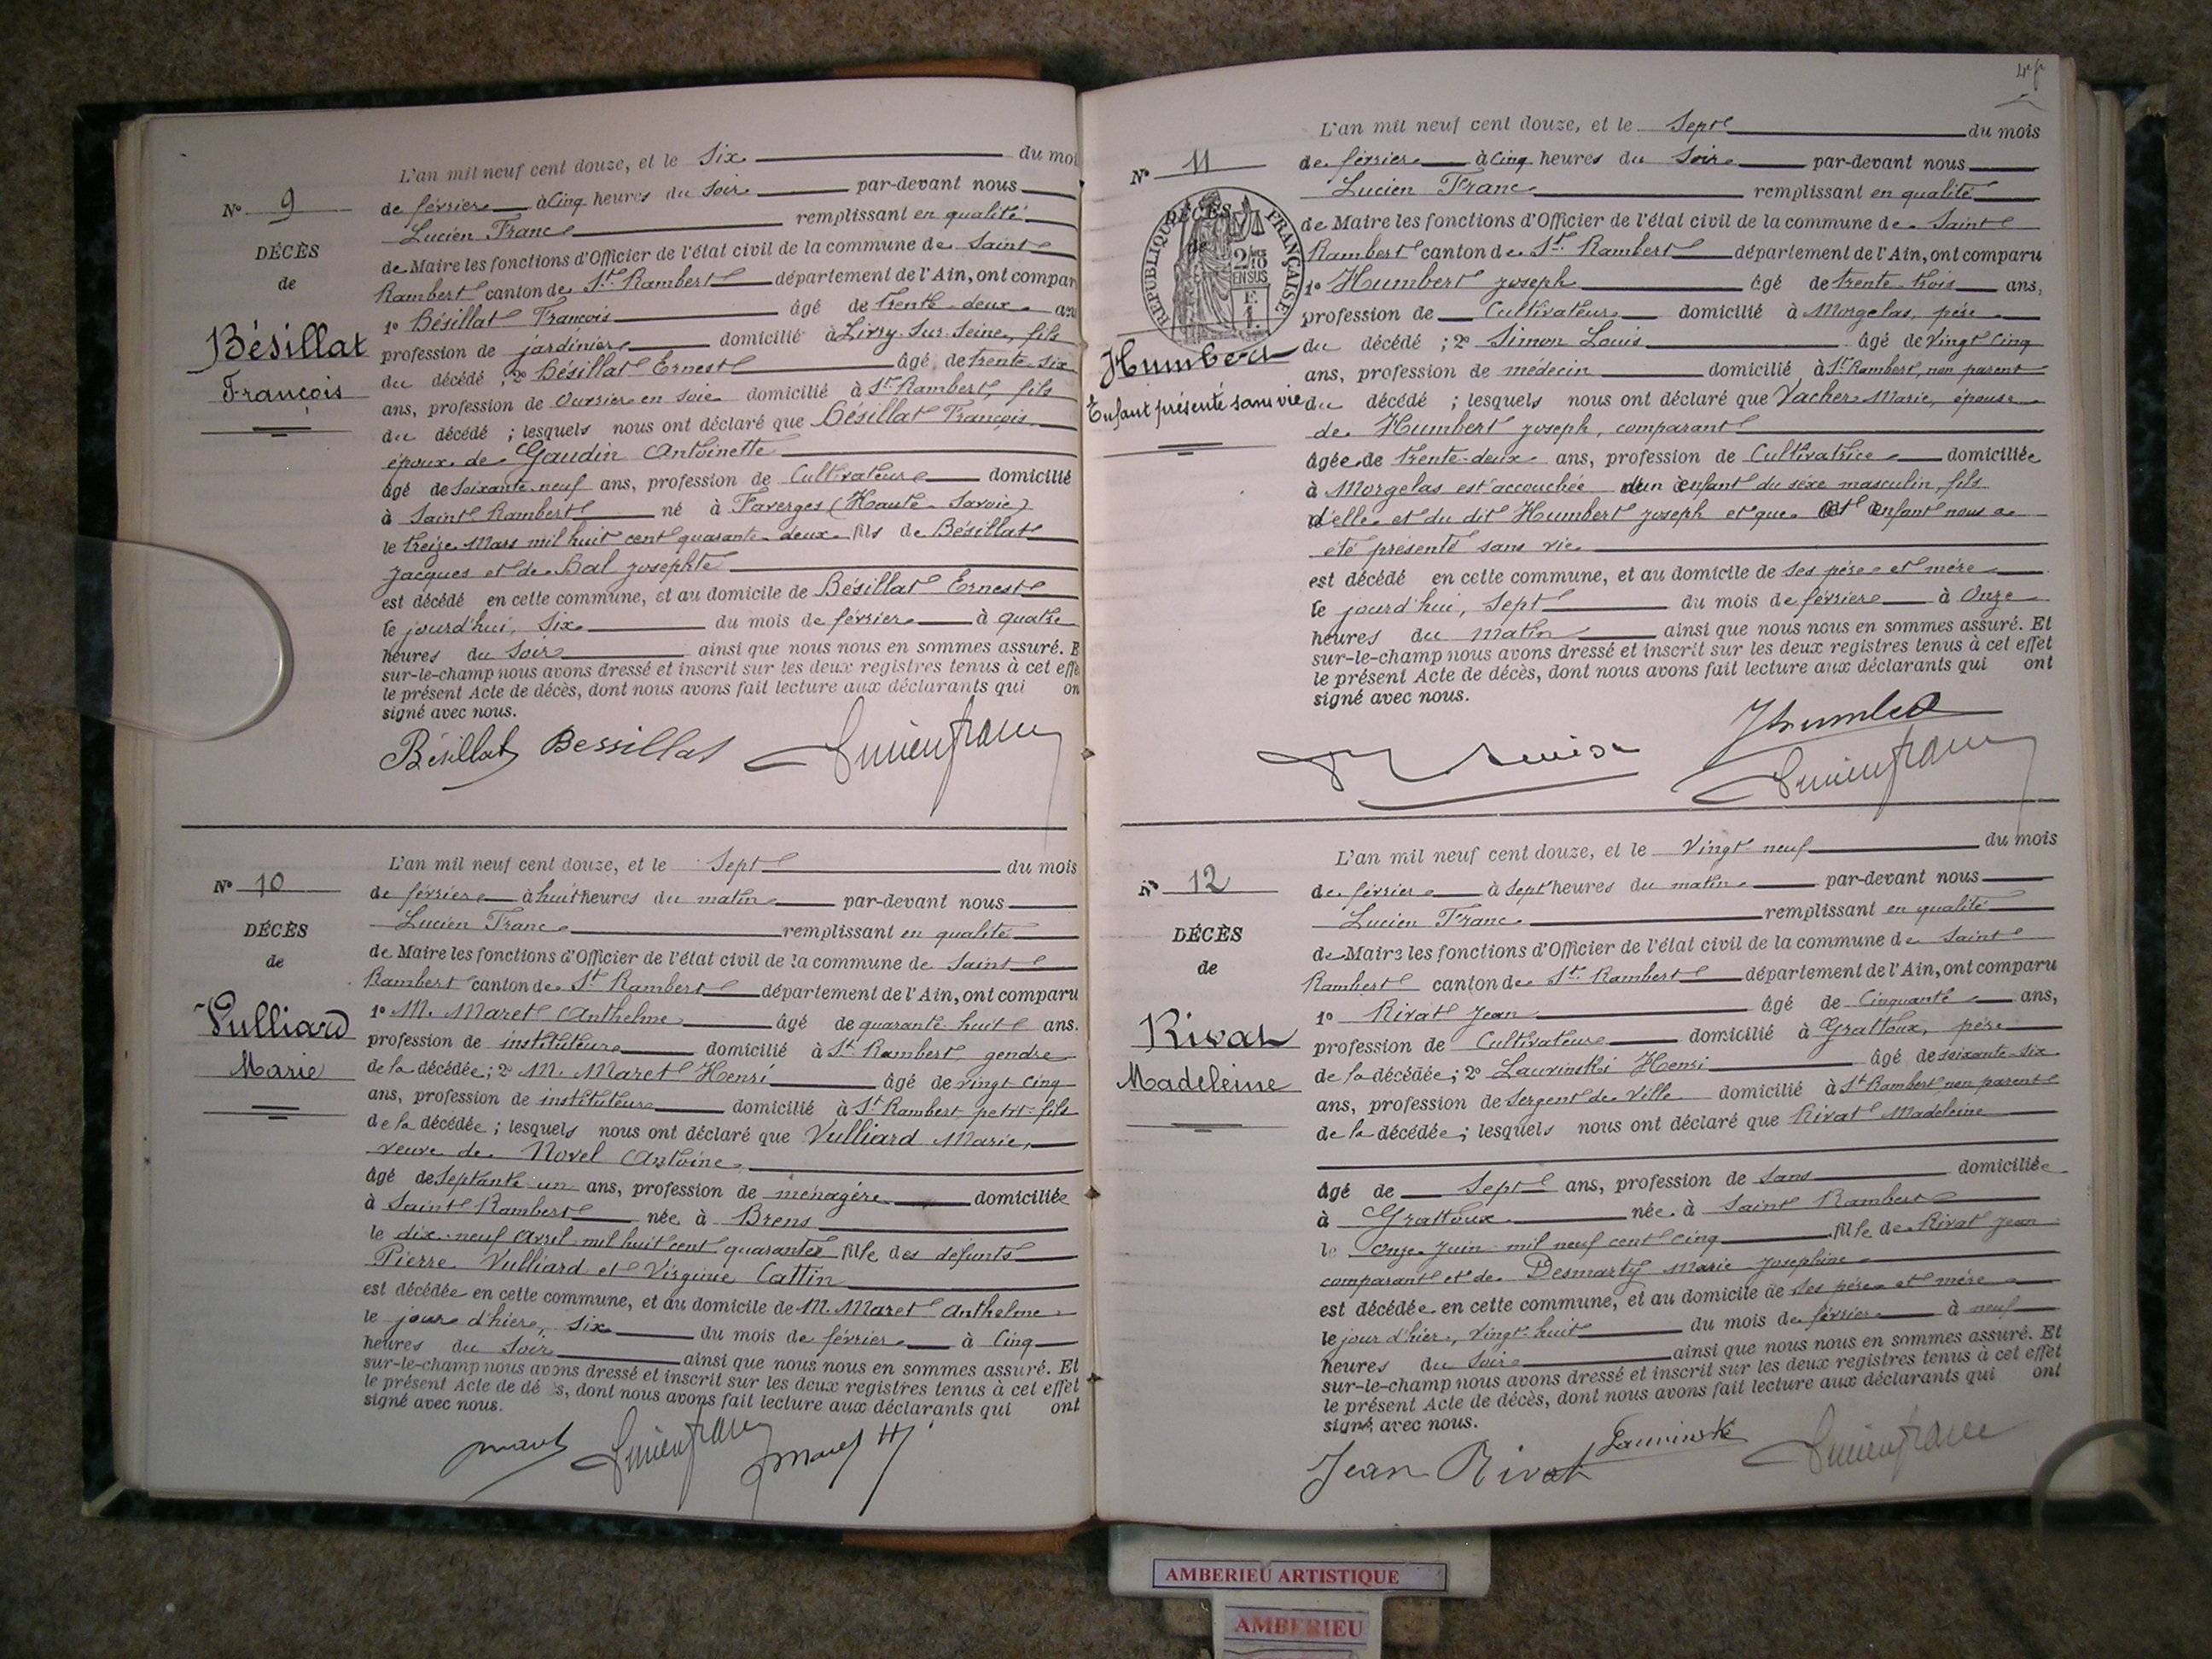 L'an mil neuf cent douze, et le Six du moi
N° 9
de février à Cinq heures du Soir par-devant nous
Lucien Franc remplissant en qualité
DÉCÈS
de Maire les fonctions d'Officier de l'état civil de la commune de Saint
de
Rambert canton de St. Rambert département de l'Ain, ont compar
1° Bésillat François âgé de trente-deux an
Bésillat
François
profession de jardinier domicilié à Livry-Sur-Seine, fils
du décédé ; 2° Bésillat Ernest âgé de trente-six
ans, profession de Ouvrier en soie domicilié à St. Rambert, fils
du décédé ; lesquels nous ont déclaré que Bésillat François
époux de Gaudin Antoinette
âgé de soixante-neuf ans, profession de Cultivateur domicilié
à Saint Rambert né à Faverges (Haute-Savoie)
le treize Mars mil huit cent quarante-deux fils de Bésillat
Jacques et de Bal Josephte
est décédé en cette commune, et au domicile de Bésillat Ernest
le jourd'hui, Six du mois de février à quatre
heures du Soir ainsi que nous nous en sommes assuré. E
sur-le-champ nous avons dressé et inscrit sur les deux registres tenus à cet effe
le présent Acte de décès, dont nous avons fait lecture aux déclarants qui on
signé avec nous.
Bésillat Bessillat Lucien franc
L'an mil neuf cent douze, et le Sept du mois
N° 10
de février à huit heures du matin par-devant nous
Lucien Franc remplissant en qualité
DÉCÈS
de Maire les fonctions d'Officier de l'état civil de la commune de Saint
de
Rambert canton de St. Rambert département de l'Ain, ont comparu
1° M. Maret Anthelme âgé de quarante-huit ans.
Vulliard
Marie
profession de instituteur domicilié à St. Rambert, gendre
de la décédée; 2° M. Maret Henri âgé de vingt-cinq
ans, profession de instituteur domicilié à St Rambert petit-fils
de la décédée ; lesquels nous ont déclaré que Vulliard Marie,
veuve de Novel Antoine,
âgé de Septante un ans, profession de ménagère domiciliée
à Saint Rambert née à Brens
le dix-neuf Avril mil huit cent quarante fille des défunts
Pierre Vulliard et Virginie Cattin
est décédée en cette commune, et au domicile de M. Maret Anthelme
le jour d'hier, six du mois de février à Cinq
heures du Soir ainsi que nous nous en sommes assuré. Et
sur-le-champ nous avons dressé et inscrit sur les deux registres tenus à cet effet
le présent Acte de dé s, dont nous avons fait lecture aux déclarants qui ont
signé avec nous.
Maret Lucien franc Maret H.
L'an mil neuf cent douze, et le Sept du mois
N° 11
de février à Cinq heures du Soir par-devant nous
Lucien Franc remplissant en qualité
RÉPUBLIQUE FRANÇAISE
DÉCÈS
de
2/10 EN SUS
de Maire les fonctions d'Officier de l'état civil de la commune de Saint
Rambert canton de St. Rambert département de l'Ain, ont comparu
1° Humbert Joseph âgé de trente-trois ans,
profession de Cultivateur domicilié à Morgelas, père
Humbert
Enfant présenté sans vie
du décédé ; 2° Simon Louis âgé de Vingt Cinq
ans, profession de médecin domicilié à St. Rambert, non parent
du décédé ; lesquels nous ont déclaré que Vacher Marie, épouse
de Humbert Joseph, comparant
âgée de trente-deux ans, profession de Cultivatrice domiciliée
à Morgelas est accouchée d'un enfant du sexe masculin, fils
d'elle et du dit Humbert Joseph et que cet enfant nous a
été présenté sans vie
est décédé en cette commune, et au domicile de Ses père et mère
le jourd'hui, Sept du mois de février à Onze
heures du matin ainsi que nous nous en sommes assuré. Et
sur-le-champ nous avons dressé et inscrit sur les deux registres tenus à cet effet
le présent Acte de décès, dont nous avons fait lecture aux déclarants qui ont
signé avec nous.
JHumbert
Lucien franc
L'an mil neuf cent douze, et le Vingt-neuf du mois
N° 12
de février à Sept heures du matin par-devant nous
Lucien Franc remplissant en qualité
DÉCÈS
de Maire les fonctions d'Officier de l'état civil de la commune de Saint
de
Rambert canton de St. Rambert département de l'Ain, ont comparu
1° Rivat Jean âgé de Cinquante ans,
Rivat
Madeleine
profession de Cultivateur domicilié à Grattoux, père
de la décédée; 2° Lauvinski Henri âgé de soixante-six
ans, profession de Sergent de Ville domicilié à St Rambert non parent
de la décédée; lesquels nous ont déclaré que Rivat Madeleine
âgé de Sept ans, profession de Sans domiciliée
à Grattoux née à Saint Rambert
le onze Juin mil neuf cent cinq fille de Rivat Jean
comparant et de Desmarty Marie Josephine
est décédée en cette commune, et au domicile de Ses père et mère
le jour d'hier, Vingt-huit du mois de février à neuf
heures du Soir ainsi que nous nous en sommes assuré. Et
sur-le-champ nous avons dressé et inscrit sur les deux registres tenus à cet effet
le présent Acte de décès, dont nous avons fait lecture aux déclarants qui ont
signé avec nous.
Jean Rivat Lauvinski Lucien franc
AMBERIEU ARTISTIQUE
AMBERIEU